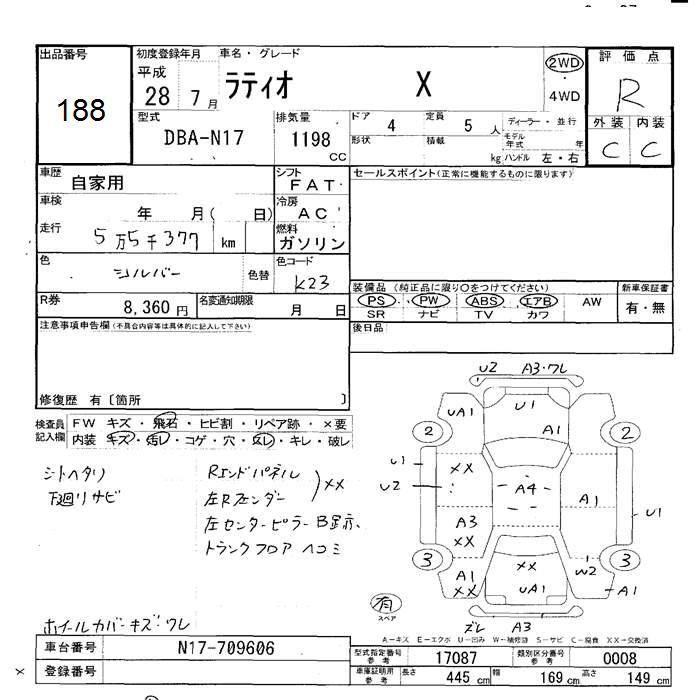 出品番号
188
初度登録年月
平成
28 7月
車名・グレード
ラティオ X
2WD
4WD
評価点
R
外装 内装
C C
型式
DBA-N17
排気量
1198
CC
ドア
4
定員
5 人
形状
積載
kg
ディーラー・並行
モデル
年式 年
ハンドル 左・右
車歴
自家用
シフト
FAT
車検
年 月( 日)
冷房
AC
走行
5万5千377 km
燃料
ガソリン
色
シルバー
色替
色コード
K23
R券
8,360円
名変通知期限
月 日
セールスポイント(正常に機能するものに限ります)
装備品 (純正品に限り○をつけてください)
PS PW ABS エアB AW
SR ナビ TV カワ
新車保証書
有・無
後日品
注意事項申告欄(不具合内容等は具体的に記入して下さい)
修復歴 有〔箇所 〕
検査員
記入欄
FW キズ・飛石・ヒビ割・リペア跡・×要
内装 キズ・汚レ・コゲ・穴・スレ・キレ・破レ
シートヘタリ
下廻りサビ
Rエンドパネル
左Rフェンダー
××
左センターピラー
トランクフロア ヘコミ
ホイールカバーキズ ワレ
U2 A3・ワレ
UA1
U1
A1
2
2
U1
U2
××
A4
A1
U1
A3
××
3
3
××
W2
A1
××
UA1
A1
有
スペア
ズレ A3
A-キズ E-エクボ U-凹み W-補修跡 S-サビ C-腐食 XX-交換済
車台番号
N17-709606
登録番号
型式指定番号
参考
17087
類別区分番号
参考
0008
車庫証明用
参考
長さ
445 cm
幅
169 cm
高さ
149 cm
×